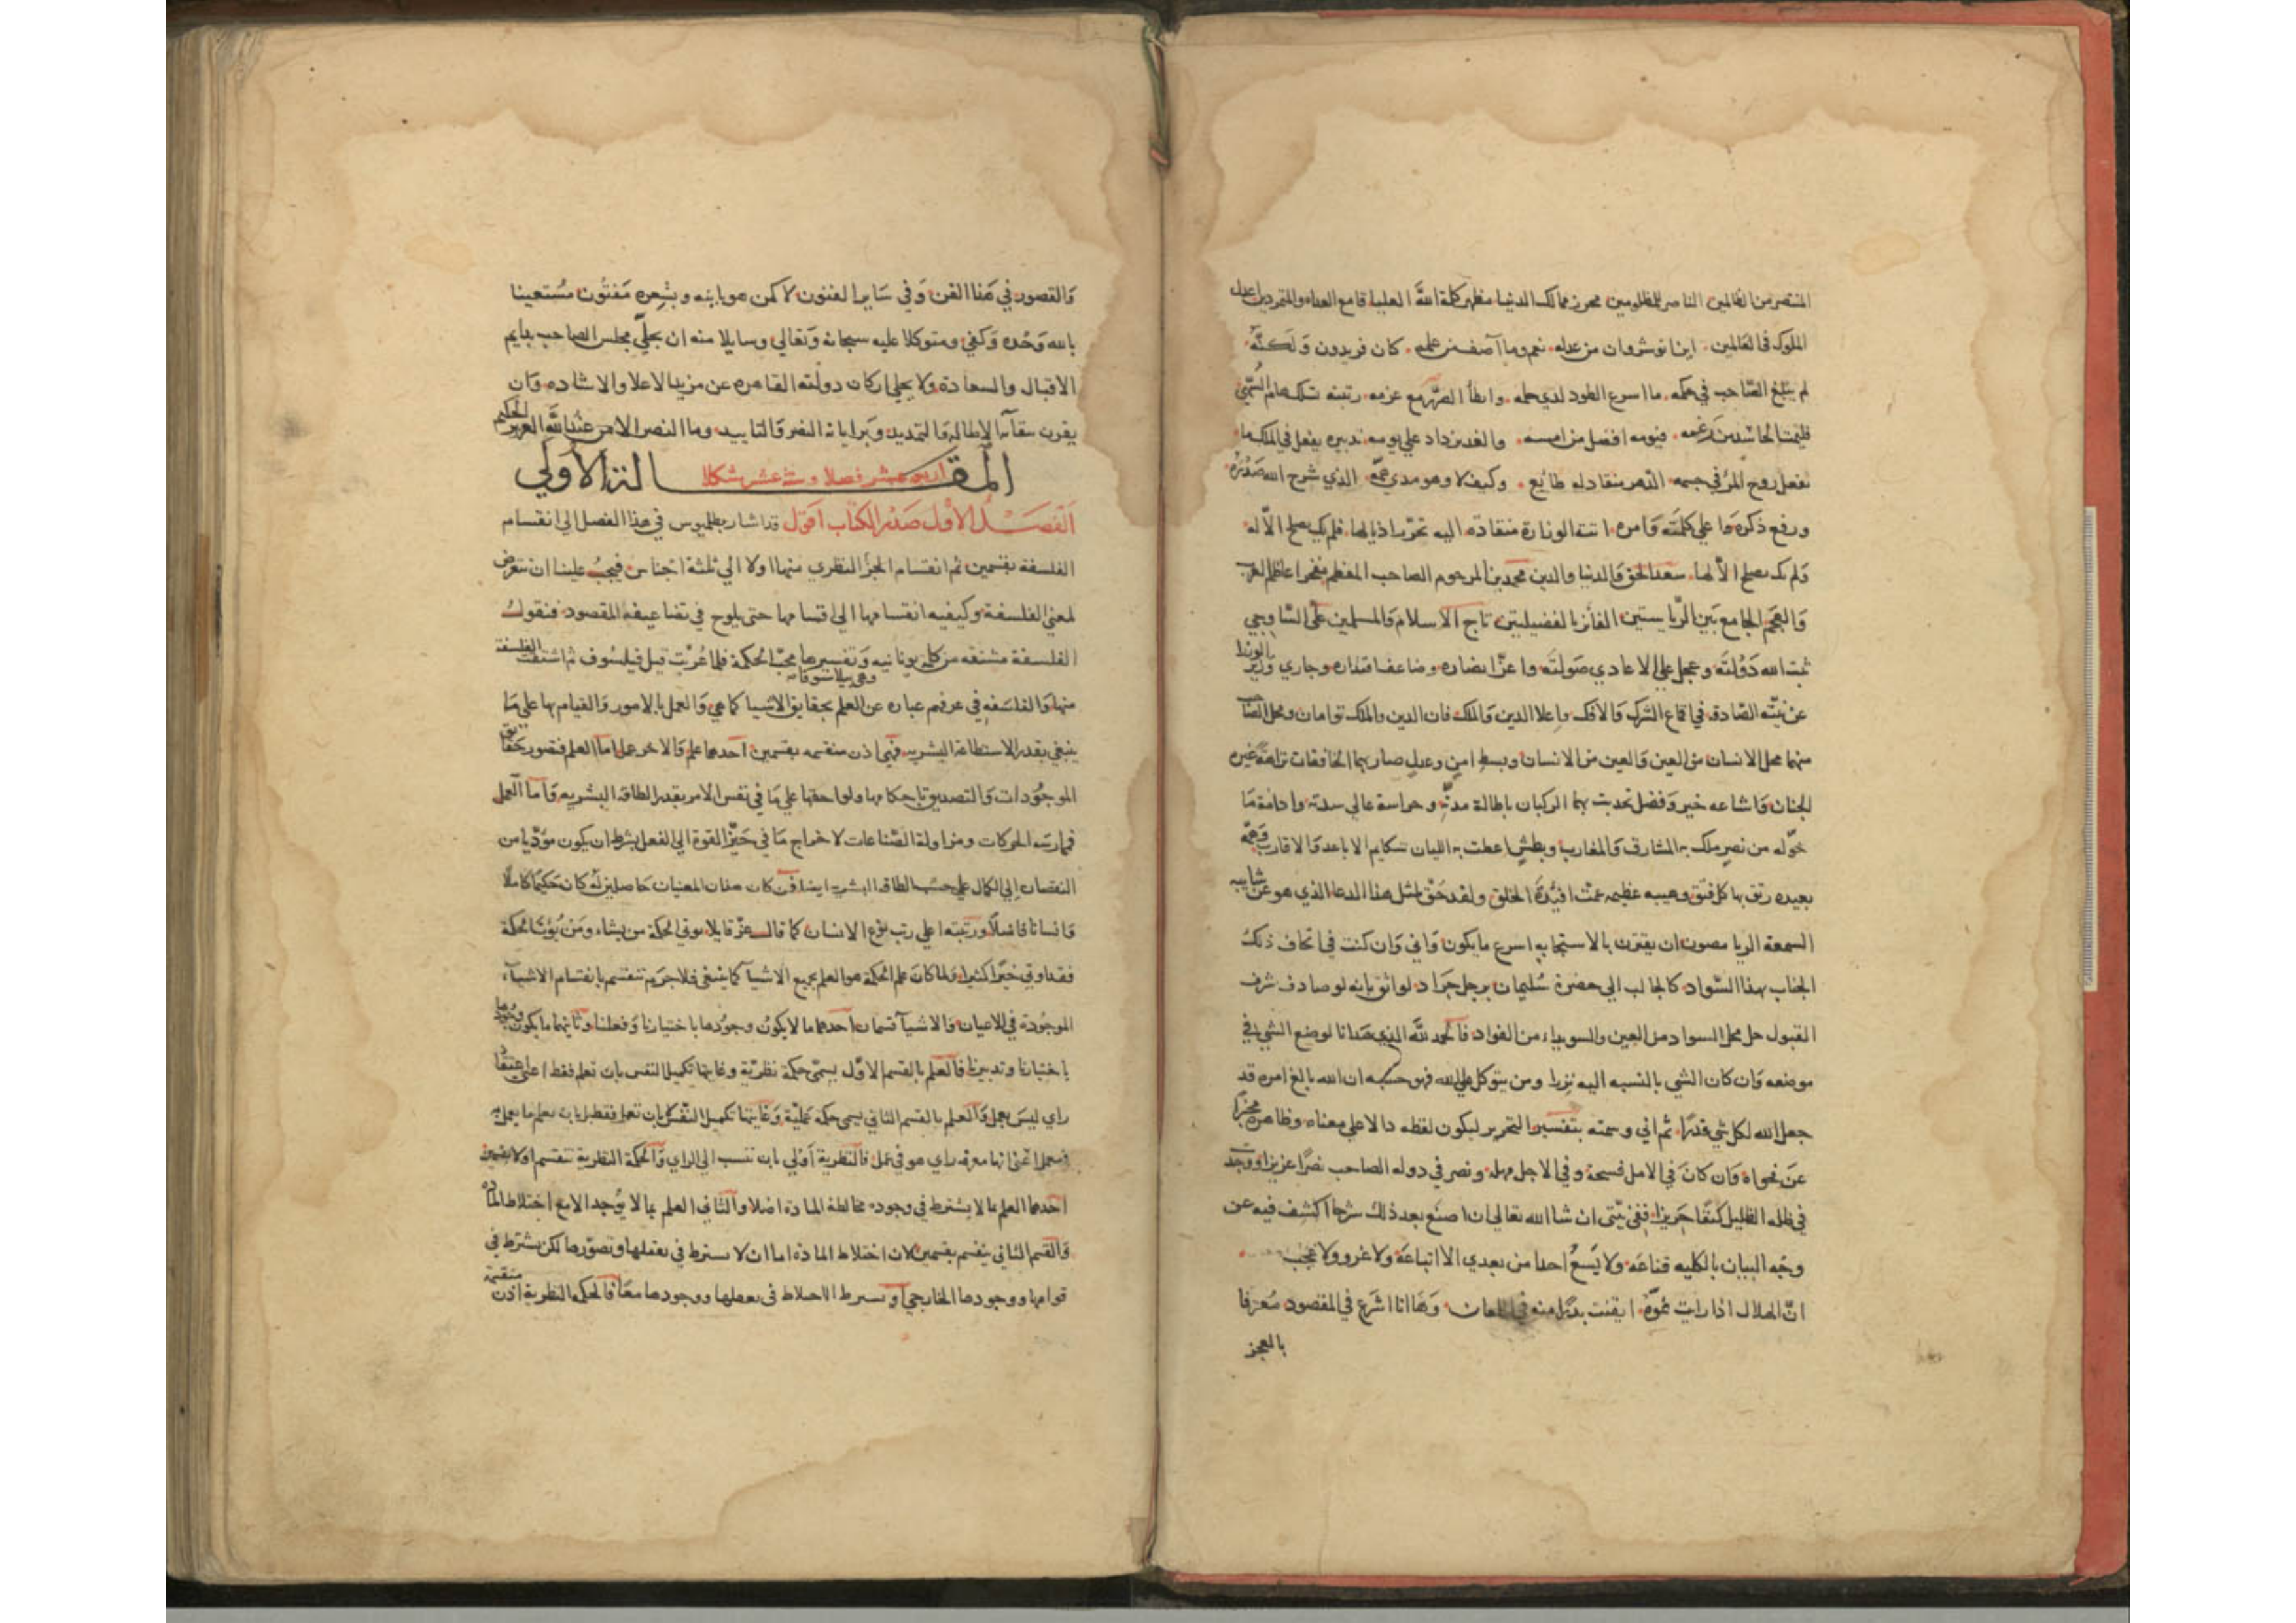 المنتصر من الظالمين الناصر للمظلومين محرز ممالك الدنيا مظهر كلمة الله العليا قامع العداه والمتمردين اعدل
الملوك في العالمين اين انوشروان من عدله نعم وما آصف من علمه كان فريدون وَلكنّهُ
لم يبلغ الصّاحب في حكمه ما اسرع الطود لدي حلمه وابطأ مع عزمه رتبته
فيومه افضل من امسه والغد يزداد علي يومه تدبيره يفعل في الملك ما
تفعل روح المرْ في جسمه الدّهر منقاد له طائع وكيف لا وهو مدي همّه الذي شرح الله صَدْرَهُ
ورفع ذكره وَاعلي كلمَته وَامره اتته الوزارة منقادة اليه تجرّر اذيالها فلم يك يصلح الاّ له
وَلم يك يصلح الاّ لها سعد الحق وَالدنيا والدين محمد بن المرحوم الصاحب المعظم مفخر اعاظم العرب
وَالعجم الجامع بَين الرّياستين الفائز بالفضيلتين تاج الاسلام وَالمسلمين علي السّاوجي
ثبت الله دَوْلتَه وعجل علي الاعادي صَولتَه واعزّ انصاره وضاعف اقتداره وجازي وزير الوزرا
عن نيّته الصّادقة في اقماع الشرك وَالافك واعلا الدين وَالملك فان الدين والملك توامان ومحل الصّاحب
منهما محل الانسان من العين وَالعين من الانسان وبسط امن وعدل صار بهما الخافقان نزاهة غيره
الجنان وَاشاعه خير وَفضل تحدث بهما الركبان باطالة مدتّه وحراسة عالي سدته وادامة مَا
خوّله من نصر ملك به المشارق وَالمغارب وبطش اعطت به الليان شكايم الاباعد وَالاقارب وَهمّة
بعيده رتق بها كل فتق وهيبه عظيمه عمّت افئدة الخلق ولقد حُقّ لمثل هذا الدعا الذي هو عن شايبه
السمعة الريا مصون ان يقترن بالاستجابه اسرع ما يكون وَاني وَان كنت في اتحاف ذلك
الجناب بهذا السّواد كالجالب الي حضرة سُليمان برجل جَراد لواثق بانه لو صادف شرف
القبول حل محل السواد من العين والسويداء من الفواد فالحمد لله الذي هَدانا لوضع الشي في
موضعه وَان كان الشي بالنسبه اليه نزرا ومن يتوكل علي الله فهو حَسبُه ان الله بالغ امره قد
جعل الله لكل شي قدرًا ثم اني وسمته بتفسير التحرير ليكون لفظه دالا علي معناه وظاهره مخبرًا
عن فحواه وَان كانَ في الامل فسحة وفي الاجل مهله ونصر في دوله الصاحب نصرًا عزيزا ووجد
في ظله الظليل كنفًا حَريزا ففي نيّتي ان شا الله تعالي ان اصنع بعد ذلك شرحا اكشف فيه عن
وجْه البيان بالكليه قناعَه ولا يَسعُ احدا من بعدي الا اتباعَه ولا غرو ولا عجب
انّ الهلال اذا رايت نموّه ايقنت بدرًا منه في اللمعان وَهَا انا اشرَع في المقصود مُعترفا
بالعجز
وَالقصور في هَذا الفن وَفي سَاير الفنون لا كمن هو بابنه وبشِعره مَفتُون مُستعينا
بالله وَحْده وَكفي ومتوكلا عليه سبحانه وَتعالي وسايلا منه ان يحلّي مجلس الصاحب بدايم
الاقبال والسعادة ولا يخلي اركان دولته القاهره عن مزيد الاعلا والاشاده وَان
يقرن بقآءه الاطالة وَالتمديد وَبراياته النصر وَالتاييد وما النصر الا من عنْد الله العزيز الحكيم
المقــالة الأولي
اربعة عشر فصلا وستة عشر شكلا
الفصـل الاول صَدْر الكتاب اقول قد اشار بطلميوس في هذا الفصل الي انقسام
الفلسفة بقسمين ثم انقسام الجزْ النظري منهما اولا الي ثلثة اجناس فيجب علينا ان نتعرض
لمعني الفلسفة وكيفيه انقسامها الي اقسامها حتي يلوح في تضاعيفه المقصود فنقول
الفلسفة مشتقه من كلمة يونانيه وَتفسيرها محبّ الحكمة فلما عُرّبَت قيل فيلسُوف ثم اشتقت الفلسفة
وهي فيلاسوفا
منها وَالفلسَفه في عرفهم عباره عن العلم بحقايق الاشيا كما هي وَالعمل بالامور وَالقيام بها علي مَا
ينبغي بقدر الاستطاعة البشريه فهي اذن منقسمه بقسمين احدهما علم وَالاخر عمل اما العلم فتصور حَقايق
الموجوُدات وَالتصديق باحكامها ولواحقها علي مَا في نفس الامر بقدر الطاقة البشريه وَامّا العَمل
فممارسَه الحركات ومزاولة الصّناعات لاخراج مَا في حَيّز القوة الي الفعل بشرط ان يكون مؤدّيا من
النقصان اِلي الكمال علي حسَب الطاقة البشريه ايضا فمن كان هذان المعنيان حَاصلين له كان حَكيمًا كاملًا
وَانسانا فاضلًا ورتبته اعلي رتب نوْع الانسان كما قال عزّ قايلا يوتي الحكمة من يشاء ومَن يُؤتَ الحكمة
فقد اوتي خيرًا كثيرا ولما كان علم الحكمة هو العلم بجميع الاشيآ كما ينبغي فلا جرَم تنقسم بانقسام الاشيآء
الموجُودة في الاعيان وَالاشيآ قسمان احدهما ما لا يكون وجوُدها باختيارنا وَفعلنا وثانيهما ما يكون وجُودها
باختيارنا وتدبيرنا فالعلم بالقسم الاوّل يسمّي حكمة نظريّة وغايتها تكميل النفس بان تعلم فقط اعني عتقادُ
راي ليسَ بعمل وَالعلم بالقسم الثاني يسمي حكمة عَمليّة وَغايتها تكميل النّفس لا بان تعلم فقط بل بان تعلم ما يعمل به
فيعمل اعني انها معرفه راي هو في عمل فالنظرية أوْلي بان تنسب الي الراي وَالحكمة النظرية تنقسم اولا بقسمين
احَدهما العلم بما لا يشترط في وجوده مخالطة المادة اصْلا وَالثاني العلم بما لا يُوجد الا مع اختلاط المادّه
وَالقسم الثاني ينقسم بقسمين لان اختلاط المادة اما ان لا يشترط في تعقلها وتصوّرها لكن يشترط في
قوامها ووجودها الخارجي او يشترط الاختلاط في تعقلها ووجودها معًا فالحكمه النظرية اذن منقسمة